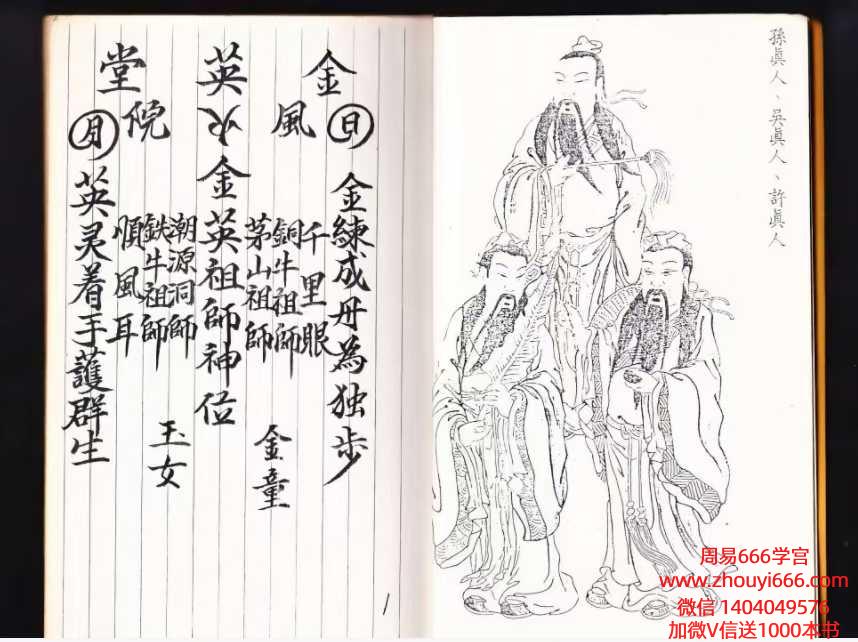 孫眞人、吳眞人、許眞人
金英堂
風火院
日
金練成丹為独步
千里眼
銅牛祖師
茅山祖師
金童
金英祖師神位
潮源洞師
鉄牛祖師
順風耳
玉女
月
英灵着手護群生
1
周易666学宫
www.zhouyi666.com
微信 1404049576
加微V信送1000本书